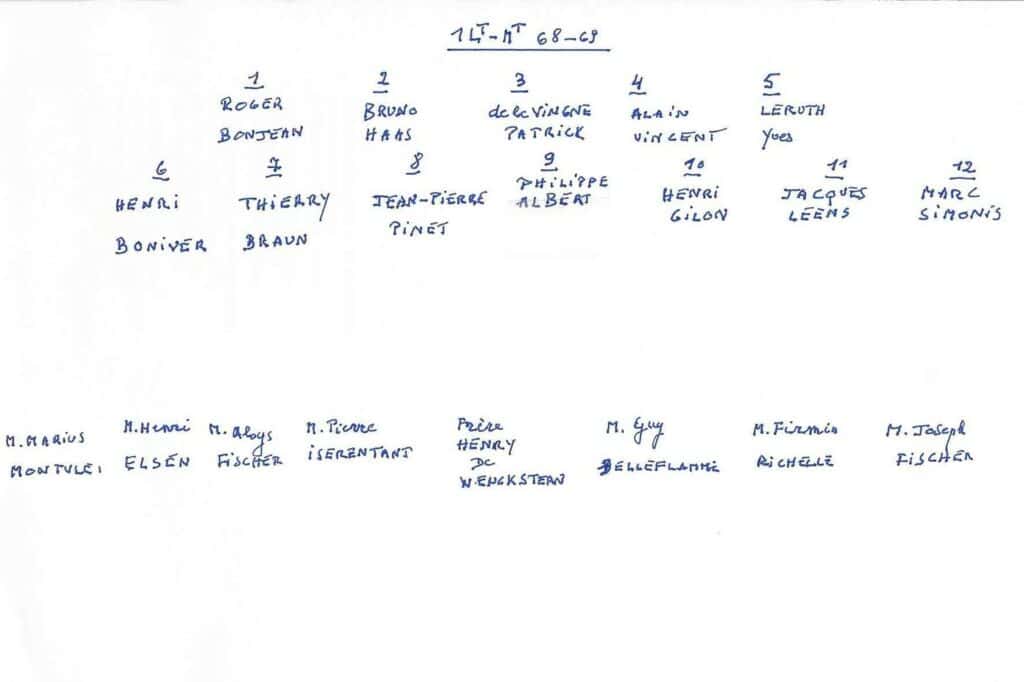 1 LT-MT 68-69
1 2 3 4 5
ROGER BRUNO de le VINGNE ALAIN LEROTH
BONJEAN HAAS PATRICK VINCENT Yves
6 7 8 9 10 11 12
HENRI THIERRY JEAN-PIERRE PHILIPPE HENRI JACQUES MARC
BONIVER BRAUN PINET ALBERT GILON LEENS SIMONIS
M. MARIUS M. Henri M. Aloys M. Pierre Frère M. Guy M. Firmin M. Joseph
MONTULET ELSEN FISCHER ISERENTANT HENRY BELLEFLAMME RICHELLE FISCHER
DE